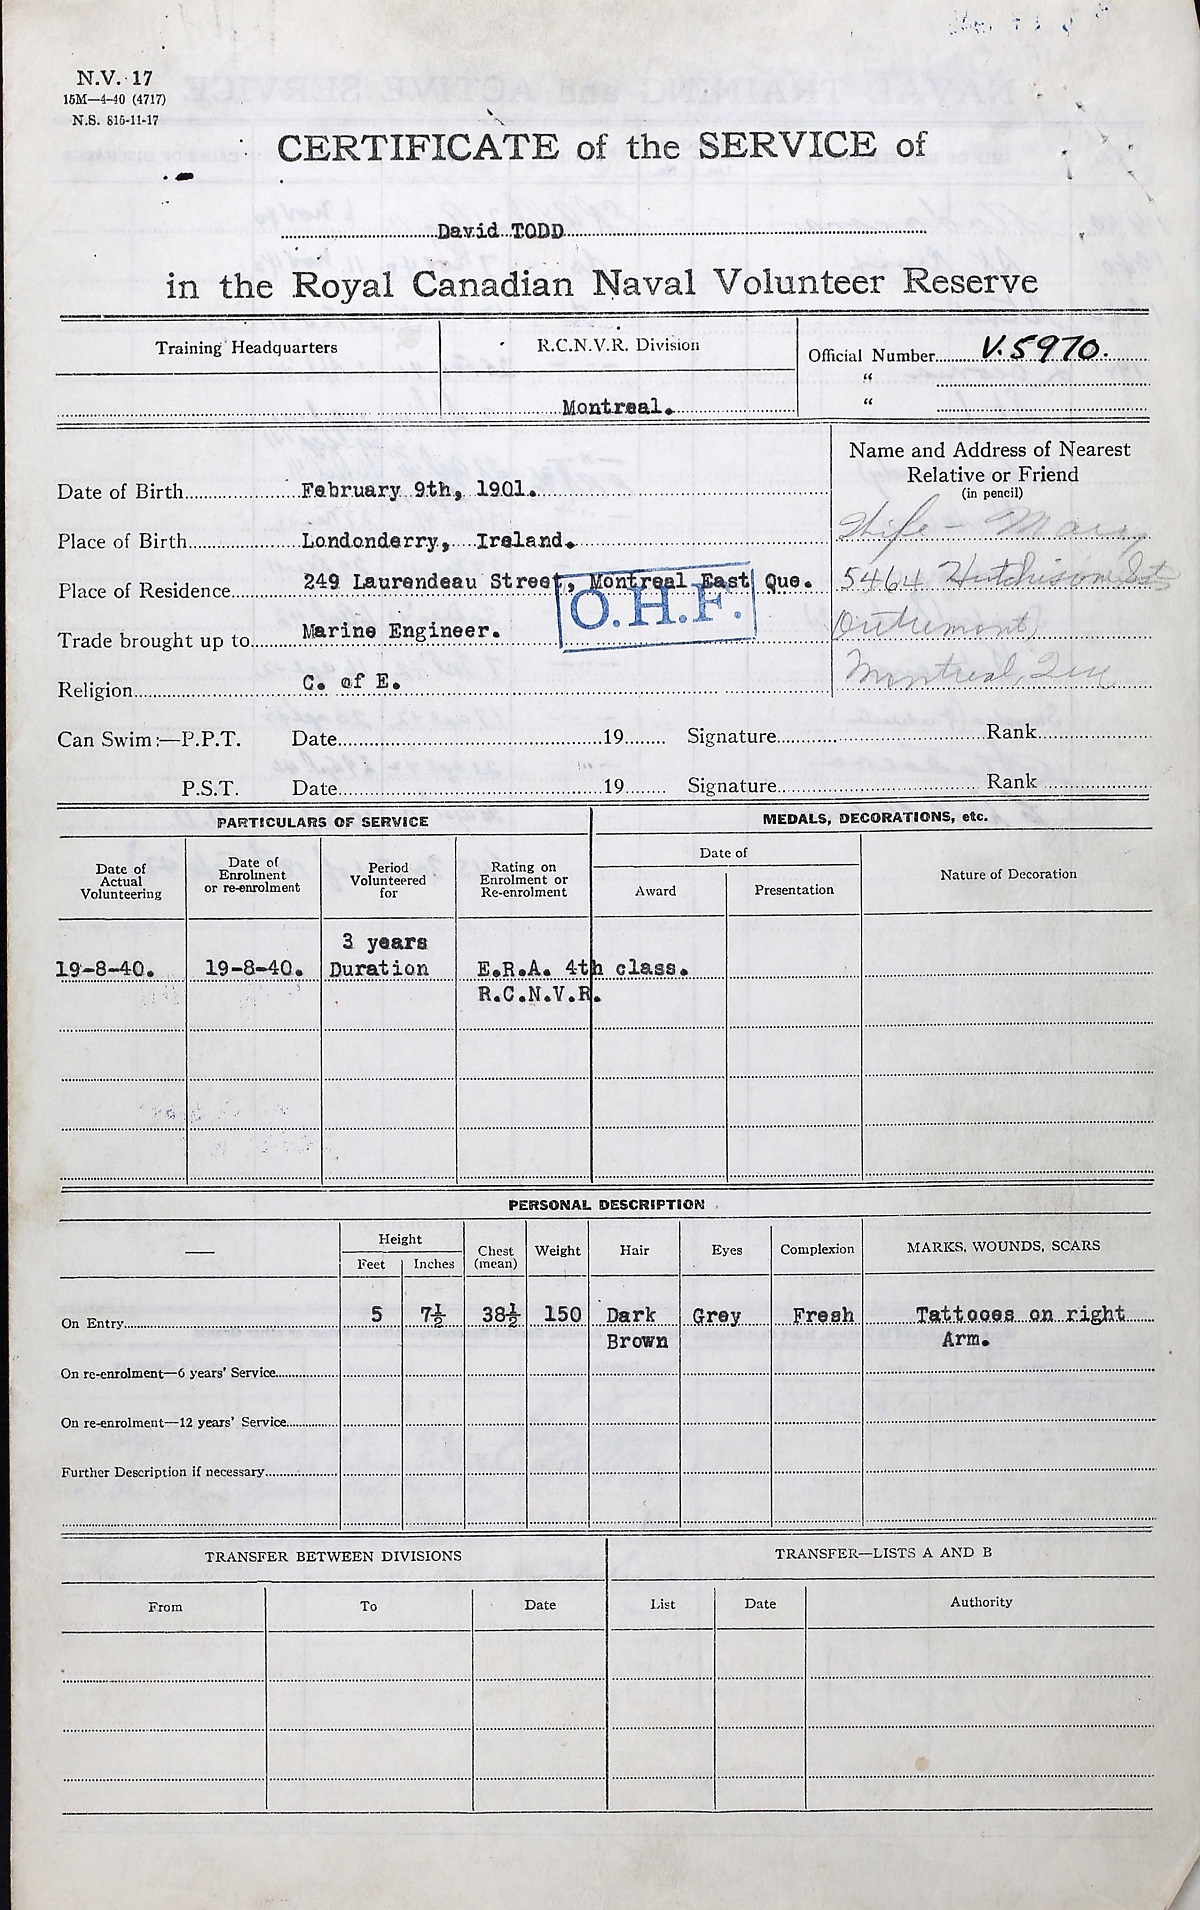 N.V. 17
15M—4-40 (4717)
N.S. 815-11-17
CERTIFICATE of the SERVICE of
David TODD
in the Royal Canadian Naval Volunteer Reserve
Training Headquarters
R.C.N.V.R. Division
Montreal.
Official Number V.5970.
"
"
Name and Address of Nearest
Relative or Friend
(in pencil)
Wife - Mary,
5464 Hutchison St
Outremont,
Montreal, Que
Date of Birth February 9th, 1901.
Place of Birth Londonderry, Ireland.
Place of Residence 249 Laurendeau Street, Montreal East Que.
O.H.F.
Trade brought up to Marine Engineer.
Religion C. of E.
Can Swim:—P.P.T. Date 19 Signature Rank
P.S.T. Date 19 Signature Rank
PARTICULARS OF SERVICE
MEDALS, DECORATIONS, etc.
Date of
Actual
Volunteering
Date of
Enrolment
or re-enrolment
Period
Volunteered
for
Rating on
Enrolment or
Re-enrolment
Date of
Award
Presentation
Nature of Decoration
3 years
19-8-40. 19-8-40. Duration E.R.A. 4th class.
R.C.N.V.R.
PERSONAL DESCRIPTION
Height
Feet Inches
Chest
(mean)
Weight
Hair
Eyes
Complexion
MARKS, WOUNDS, SCARS
On Entry 5 7½ 38½ 150 Dark Grey Fresh Tattooes on right
Brown Arm.
On re-enrolment—6 years' Service
On re-enrolment—12 years' Service
Further Description if necessary
TRANSFER BETWEEN DIVISIONS
TRANSFER—LISTS A AND B
From To Date List Date Authority